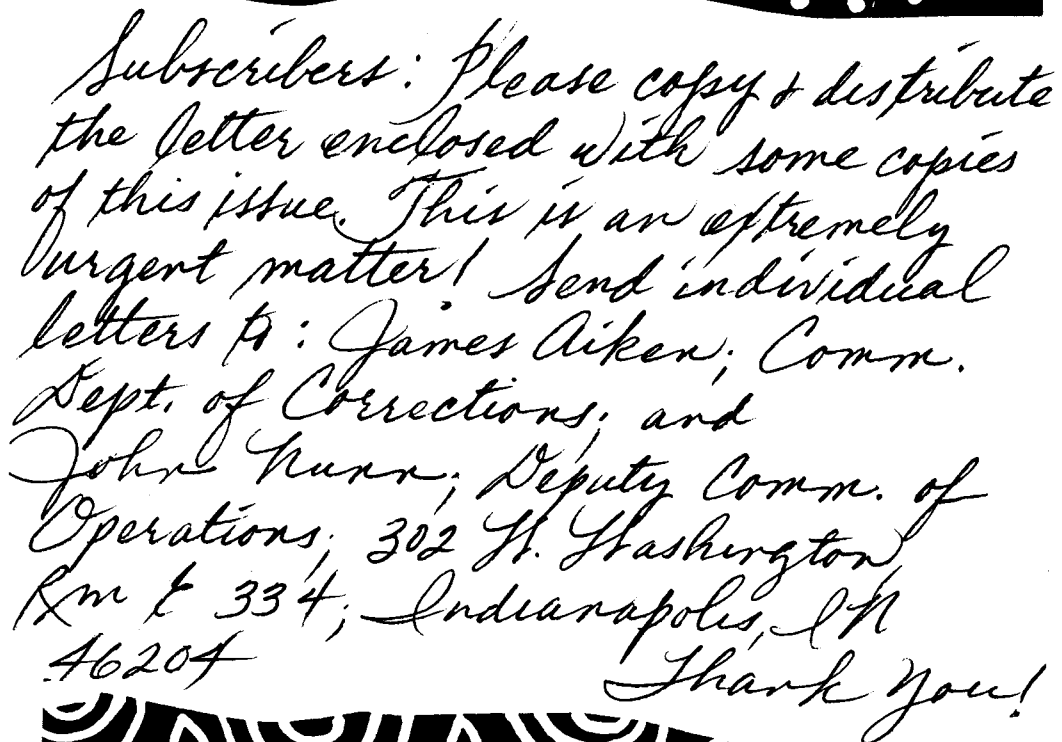 Subscribers: Please copy & distribute
the letter enclosed with some copies
of this issue. This is an extremely
urgent matter! Send individual
letters to: James Aiken; Comm.
Dept. of Corrections; and
John Nunn; Deputy Comm. of
Operations; 302 W. Washington,
Rm E 334; Indianapolis, IN
46204 Thank You!